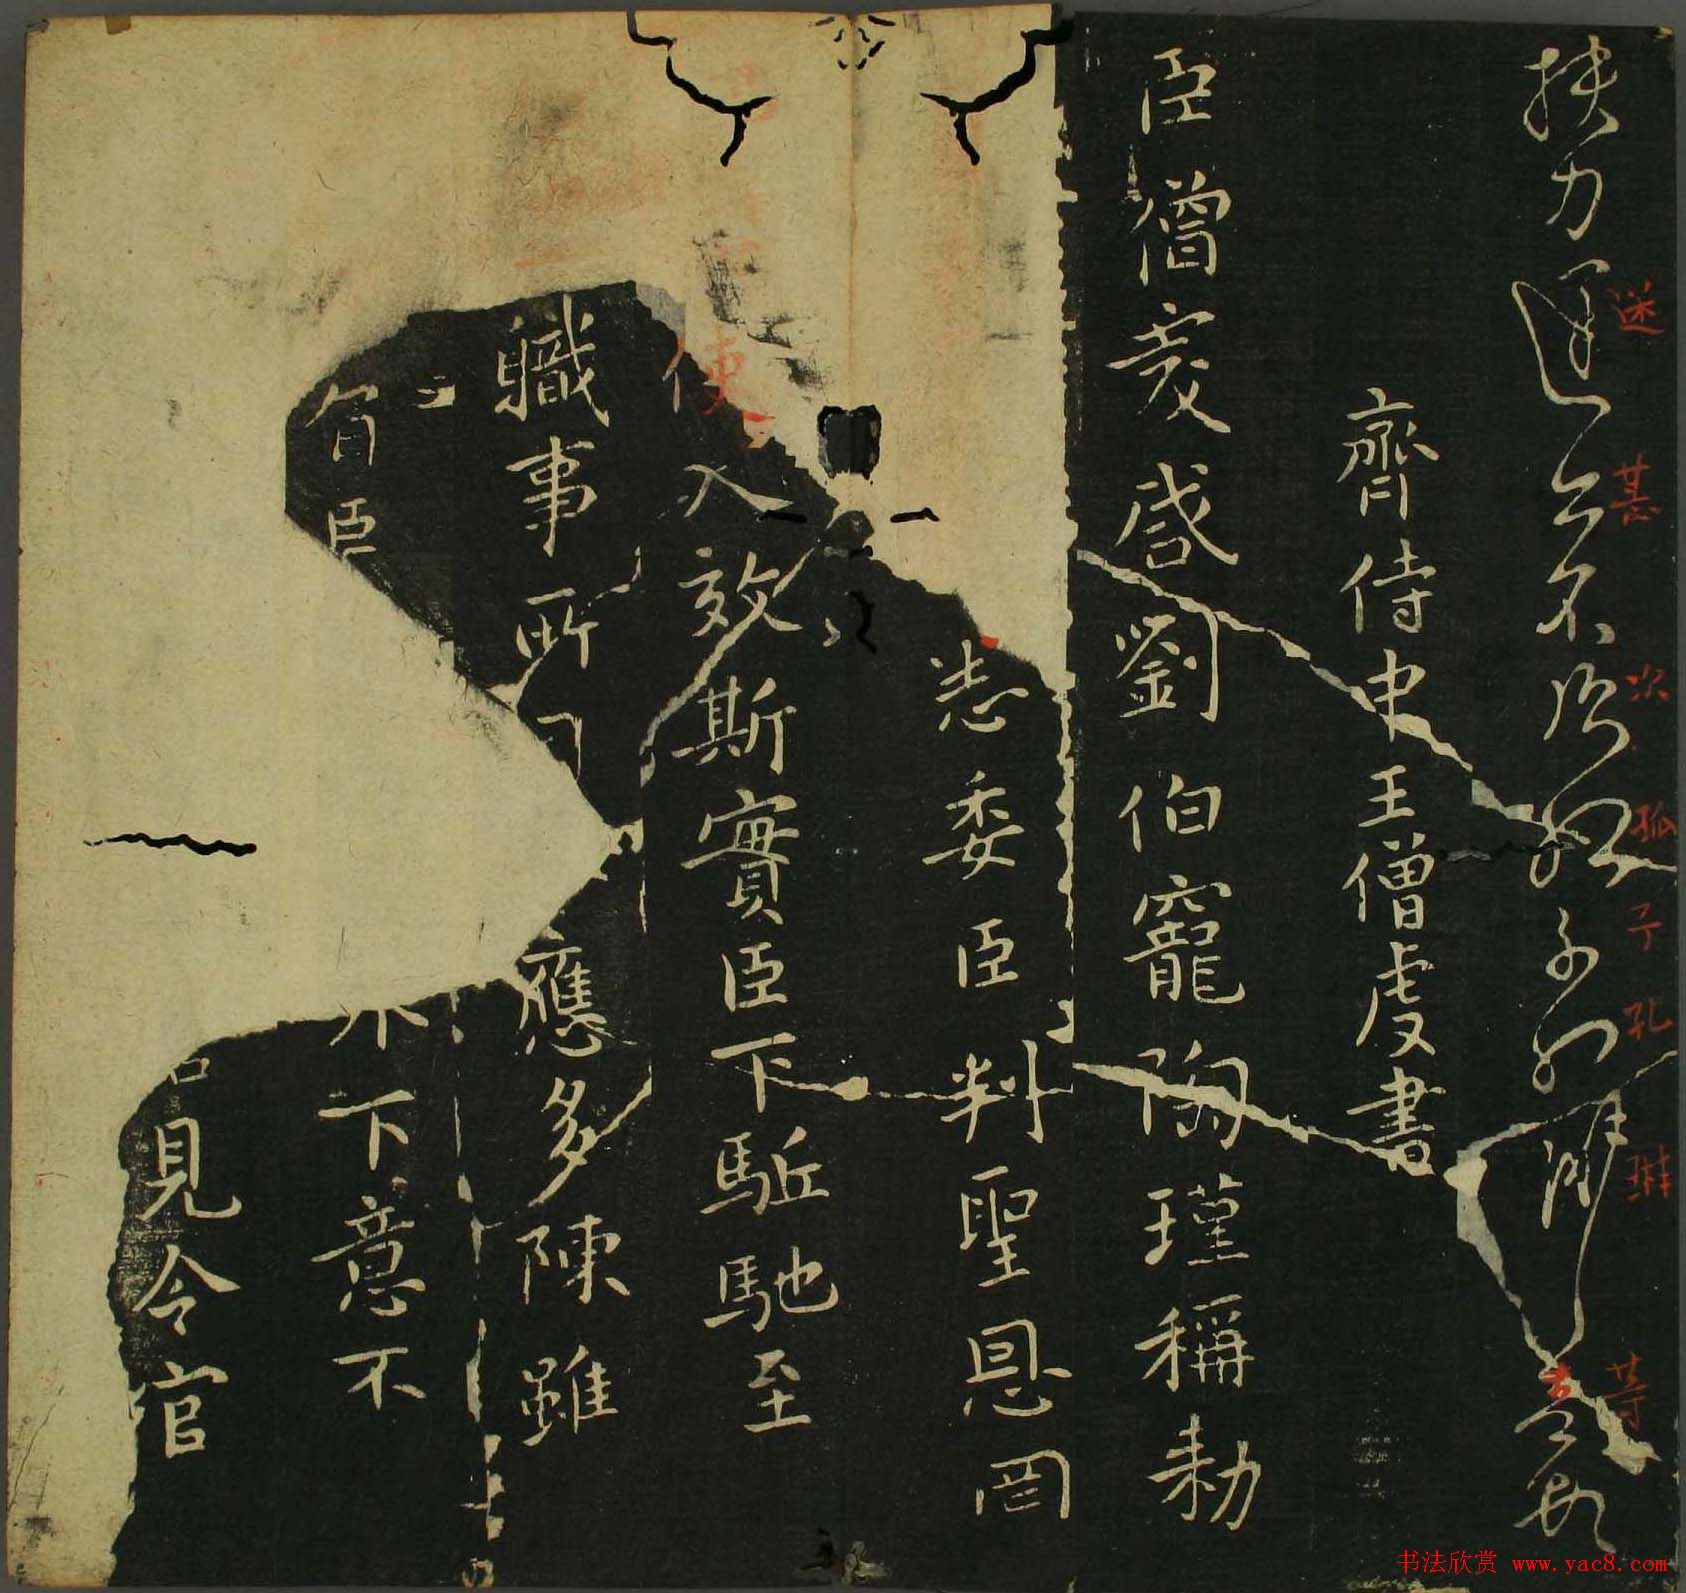 扶力 不 子
迷 甚 次 孤 子 孔 琳 等
齊侍中王僧虔書
臣僧虔啓劉伯寵陶瑾稱勑
悉委臣判聖恩罔
使
入效斯實臣下駈馳至
職事所 應多陳雖
臣 不下意不
見令官
书法欣赏 www.yac8.com